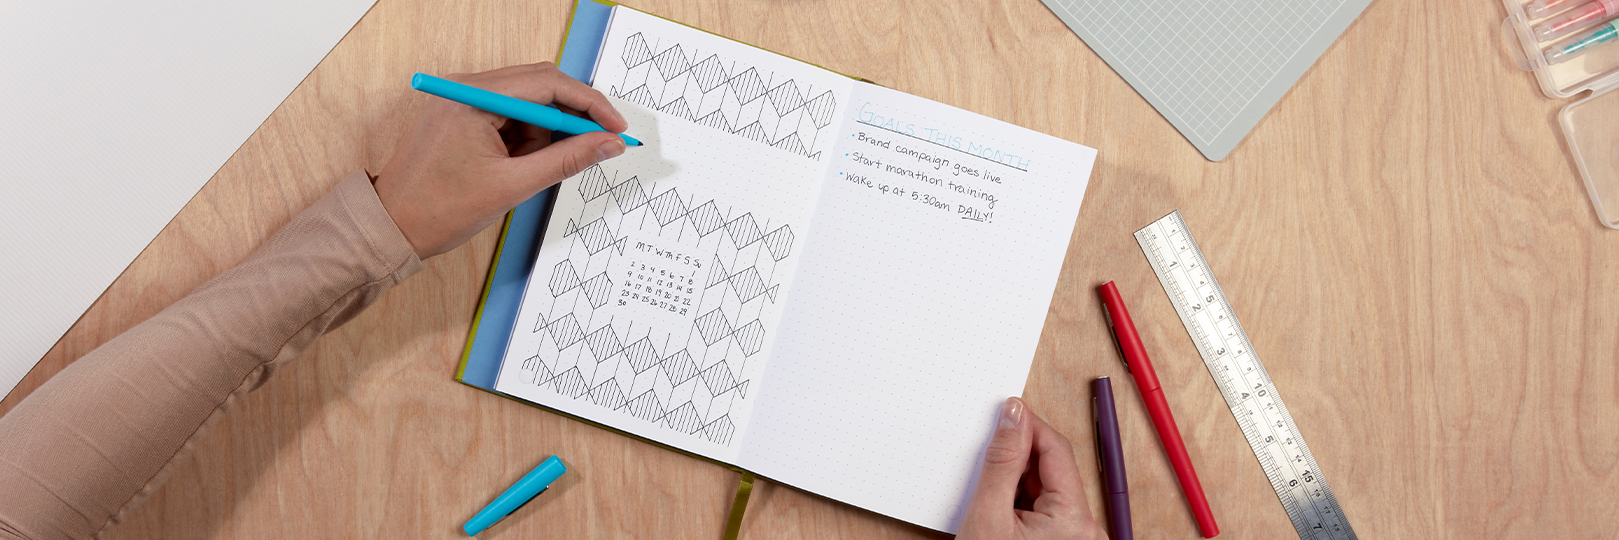 M T W Th F S Su
1
2 3 4 5 6 7 8
9 10 11 12 13 14 15
16 17 18 19 20 21 22
23 24 25 26 27 28 29
30
GOALS THIS MONTH
• Brand campaign goes live
• Start marathon training
• Wake up at 5:30am DAILY!
1 2 3 4 5 6 7
5 10 15